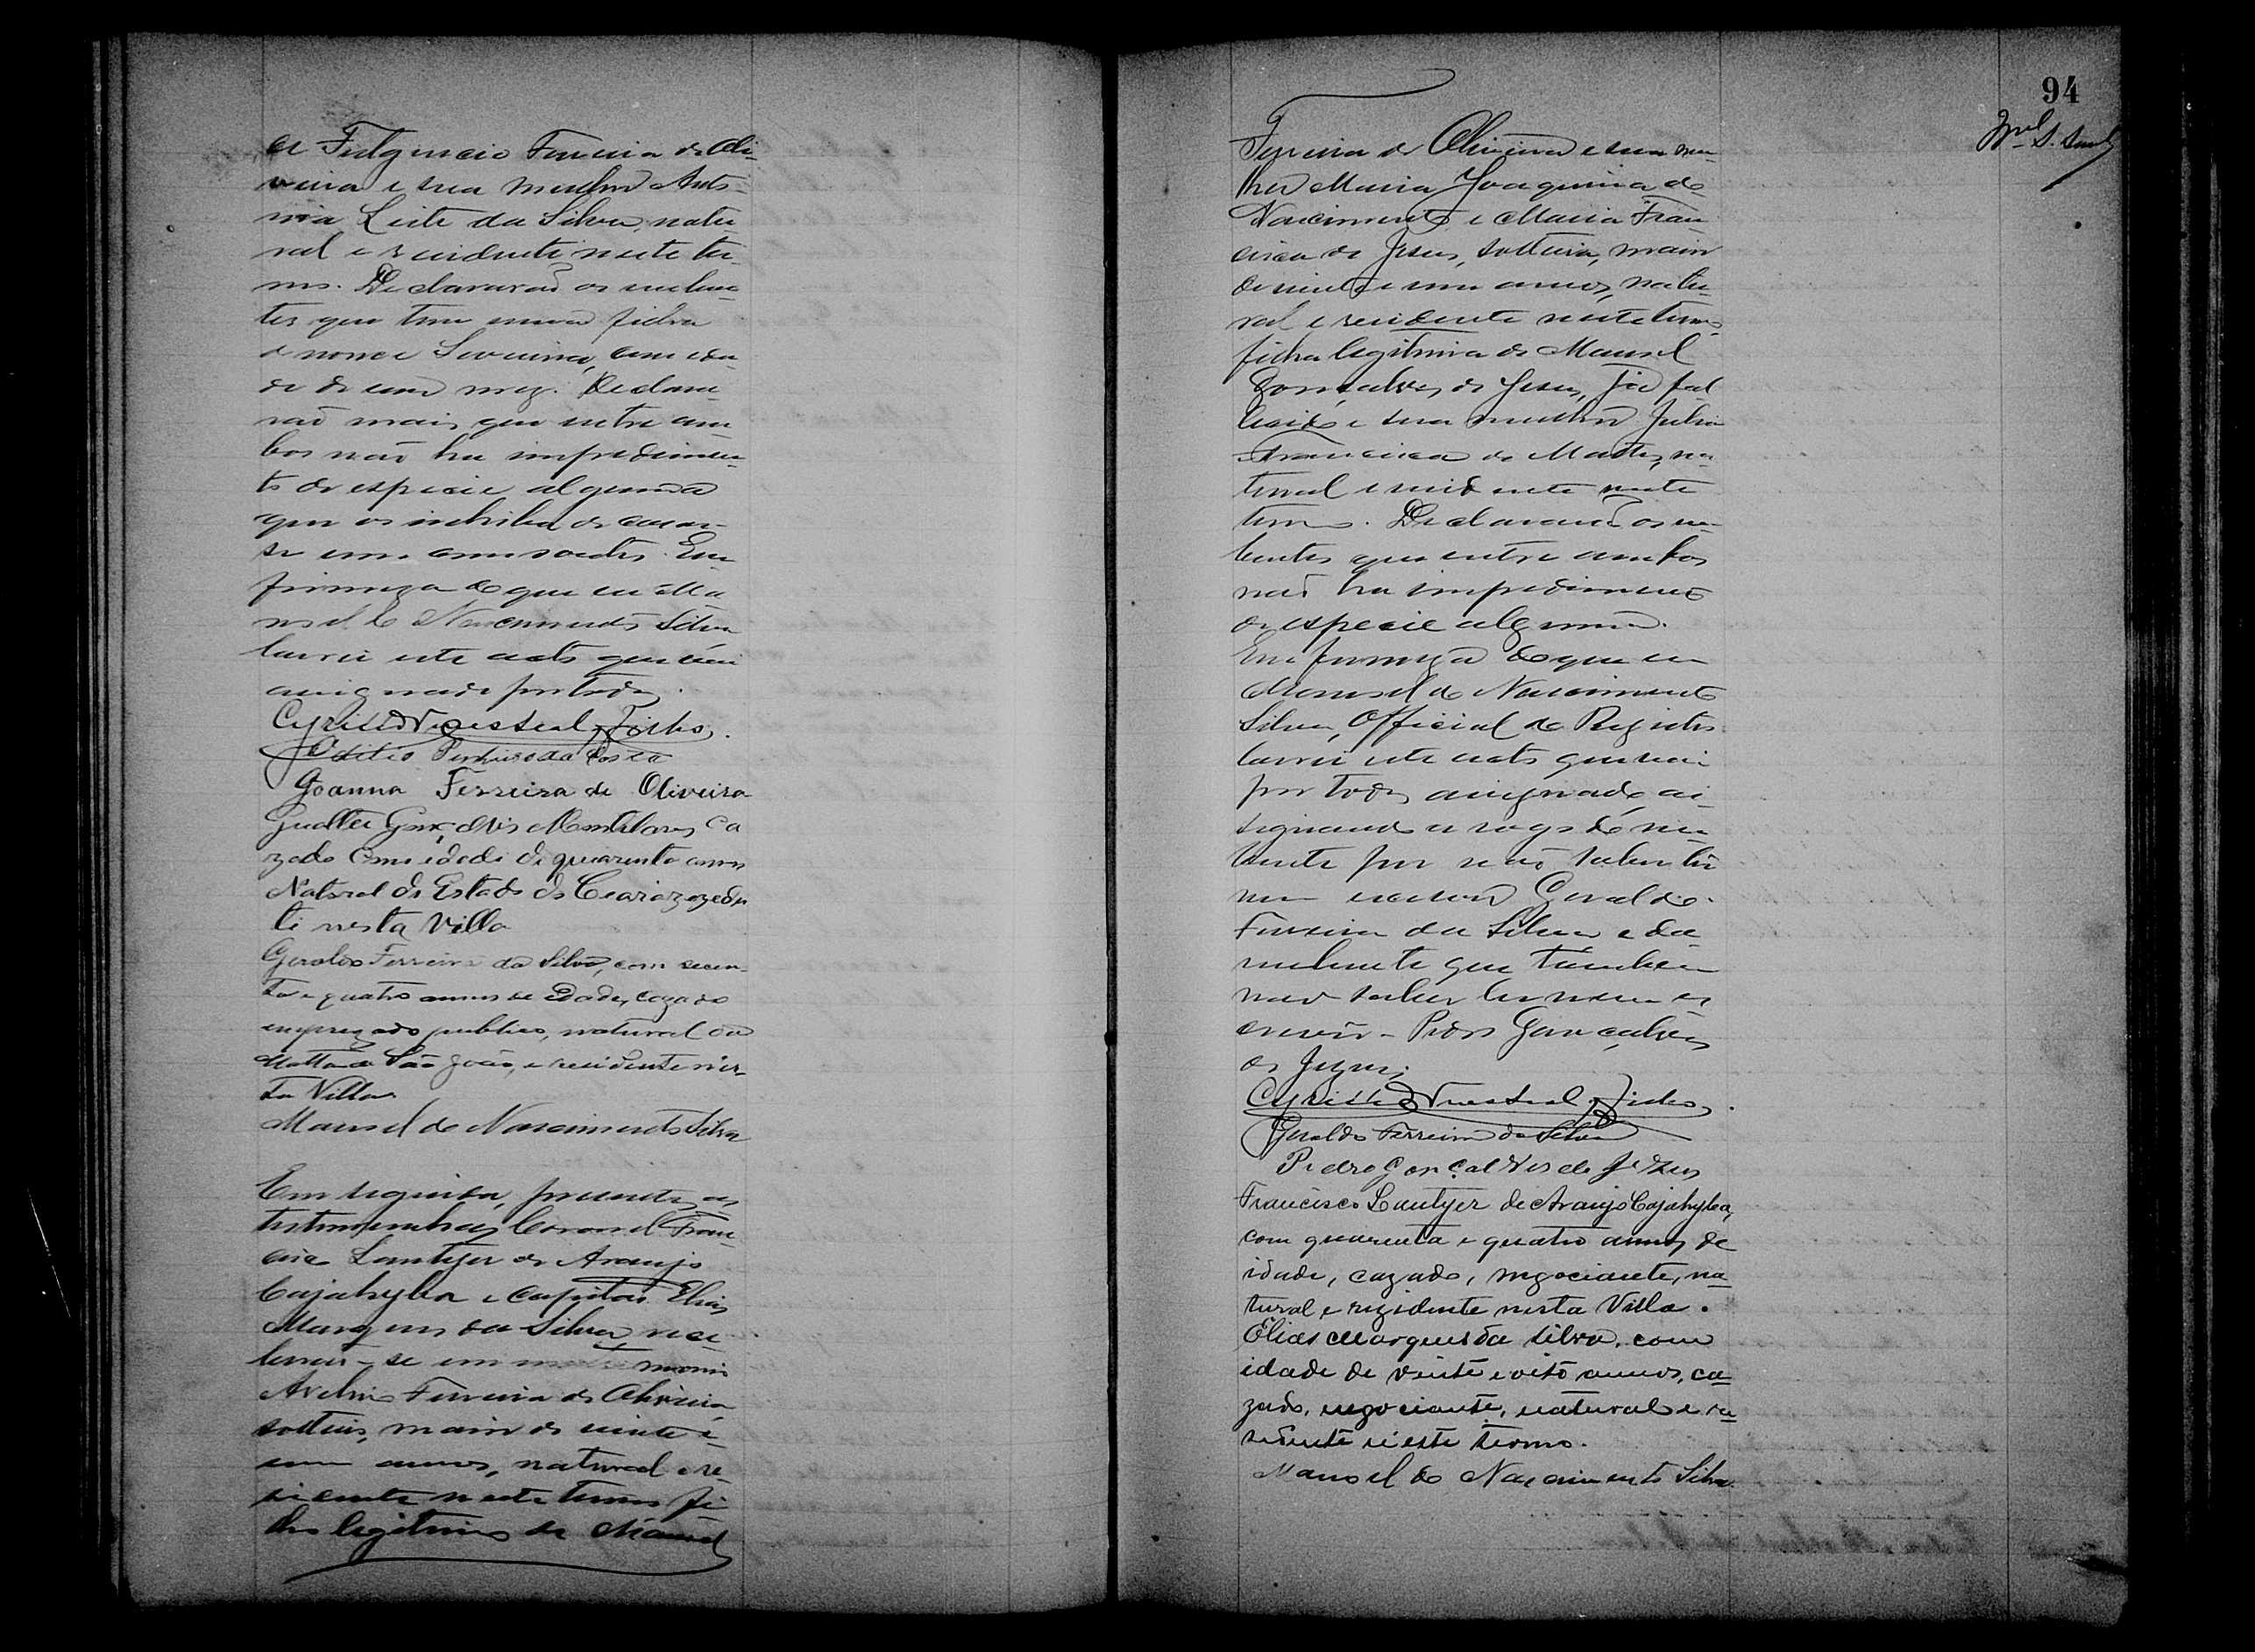 de Fulgencio Ferreira de Oli-
veira e sua mulher Anto-
nia Leite da Silva, natu-
ral e residente neste ter-
mo. Declararão os nuben-
tes que tem uma filha
de nome Severina, com ida-
de de um mez. Declara-
rão mais que entre am-
bos não ha impedimen-
to de especie alguma
que os inhiba de casar-
se um com outro. Em
firmeza do que eu Ma-
noel do Nascimento Silva
lavrei este acto que vai
assignado por todos.
Cyrillo Filho.
Pinheiro da Costa
Joanna Ferreira de Oliveira
Gualter Gonçalves Ca
zado com idade de quarenta annos
Natural do Estado do Ceará rezeden
te nesta Villa
Geraldo Ferreira da Silva, com secen-
ta e quatro annos de edade, cazado
empregado publico, natural da
Matta de São João, e residente nes-
ta Villa.
Manoel do Nascimento Silva
Em seguida, presentes as
testemunhas Coronel Fran-
cisco Lantyer de Araujo
Cajahyba e Capitão Elias
Marques da Silva, rece-
beram-se em matrimonio
Avelino Ferreira de Oliveira,
solteiro, maior de vinte e
um annos, natural e re-
sidente neste termo, fi-
lho legitimo de Manoel
94
Ferreira de Oliveira e sua mu-
lher Maria Joaquina do
Nascimento e Maria Fran-
cisca de Jesus, solteira, maior
de vinte e um annos, natu-
ral e residente neste termo,
filha legitima de Manoel
Gonsalves de Jesus, já fal-
lecido e sua mulher Julia
Francisca de Mattos, na-
tural e residente neste
termo. Declararão os nu-
bentes que entre ambos
não ha impedimento
de especie alguma.
Em firmeza do que eu
Manoel do Nascimento
Silva, Official do Registro
lavrei este acto que vai
por todos assignado, as-
signando a rogo do nu-
bente por não saber ler
nem escrever Geraldo
Ferreira da Silva e da
nubente que tambem
não saber ler nem es-
crever - Pedro Gonçalves
de Jesus;
Cyrillo Filho.
Geraldo Ferreira da Silva
Pedro Gonçalves de Jezus
Francisco Lantyer de Araujo Cajahyba,
com quarenta e quatro annos de
idade, cazado, negociante, na-
tural e rezidente nesta Villa.
Elias Marques da Silva, com
idade de vinte e oito annos, ca-
zado, negociante, natural e re-
sidente n'este termo.
Manoel do Nascimento Silva